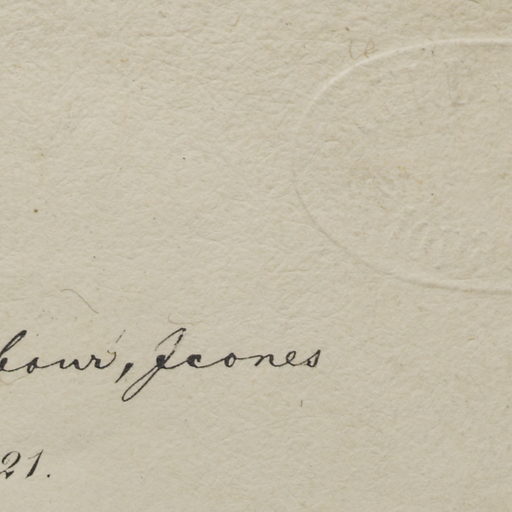 bour, Icones
21.